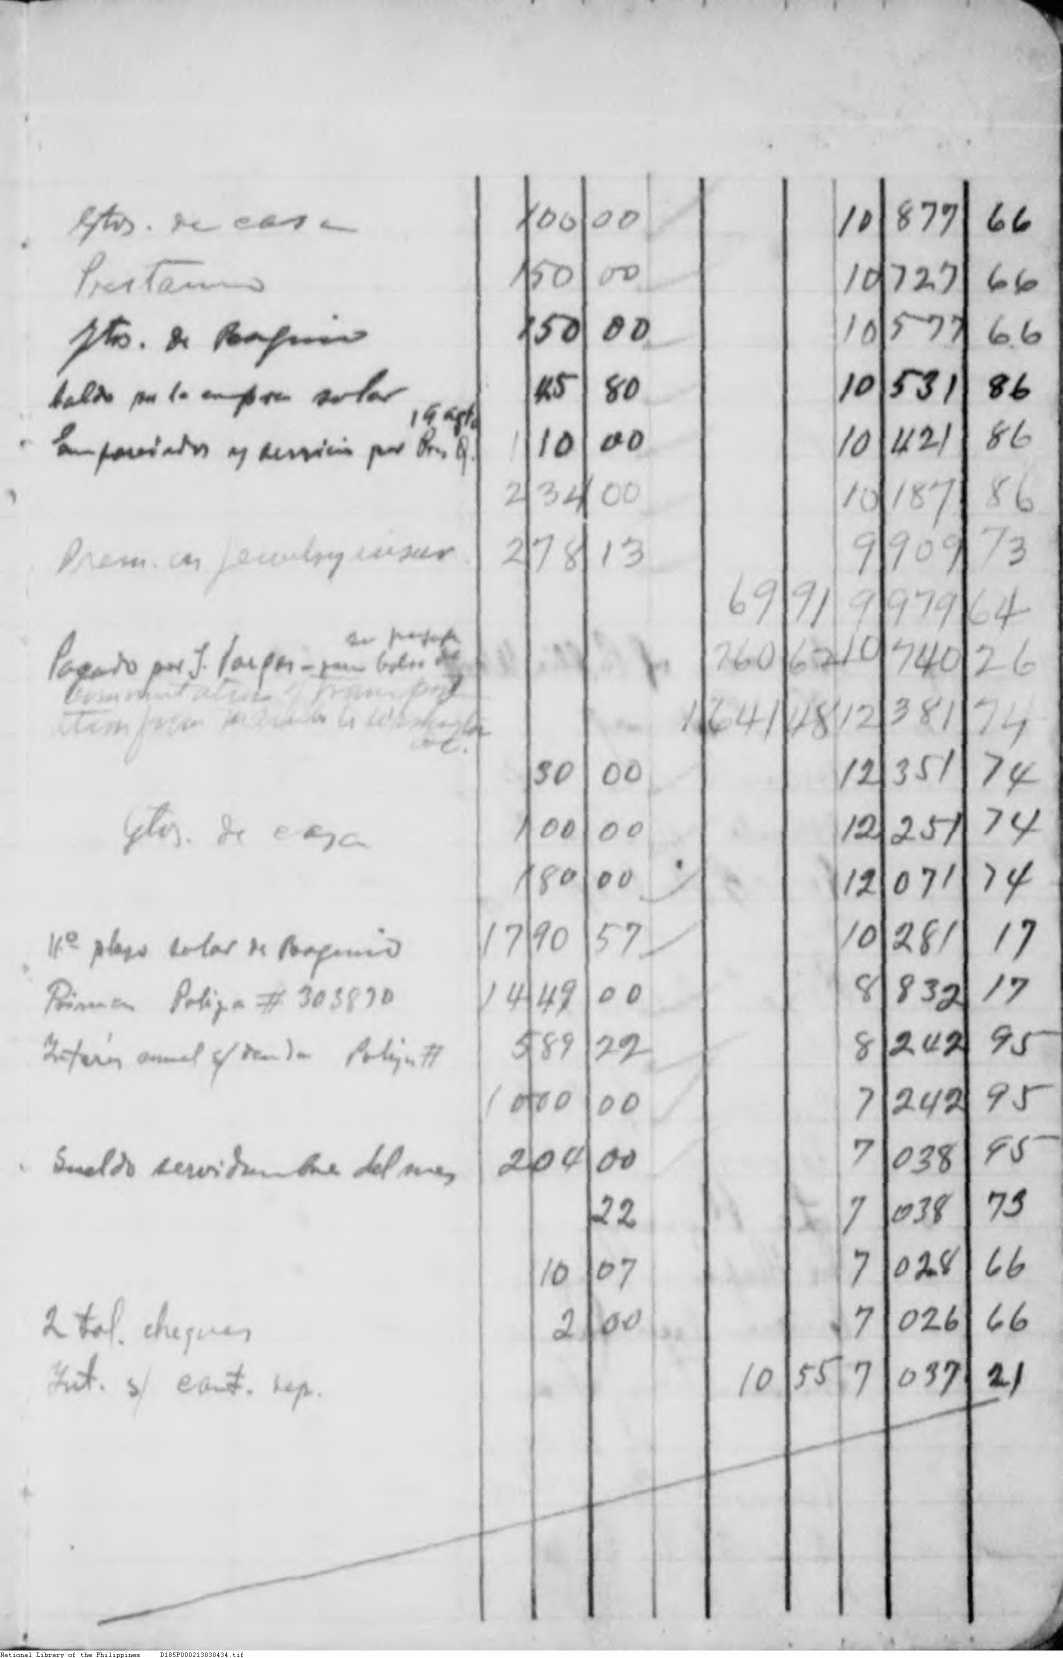 Gtos. de casa 100 00 10 877 66
Prestamo 150 00 10 727 66
Gtos. de Baguio 150 00 10 577 66
Saldo en la compra solar 45 80 10 531 86
19 agto
y servicio por 110 00 10 421 86
234 00 10 187 86
Prem. on jewelry insur. 278 13 9 909 73
69 91 9 979 64
su pasaje
Pagado por J. Vargas - para 760 62 10 740 26
Commutation of transport
ation from Manila to Washington 1 641 48 12 381 74
D.C.
30 00 12 351 74
Gtos. de casa 100 00 12 251 74
180 00 12 071 74
4º plazo solar de Baguio 1790 57 10 281 17
Prima Poliza # 303870 1449 00 8 832 17
Interés anual s/ deuda Poliza # 589 22 8 242 95
1 000 00 7 242 95
Sueldo servidumbre del mes 204 00 7 038 95
22 7 038 73
10 07 7 028 66
2 tal. cheques 2 00 7 026 66
Int. s/ cant. dep. 10 55 7 037 21
National Library of the Philippines D185P000213830434.tif